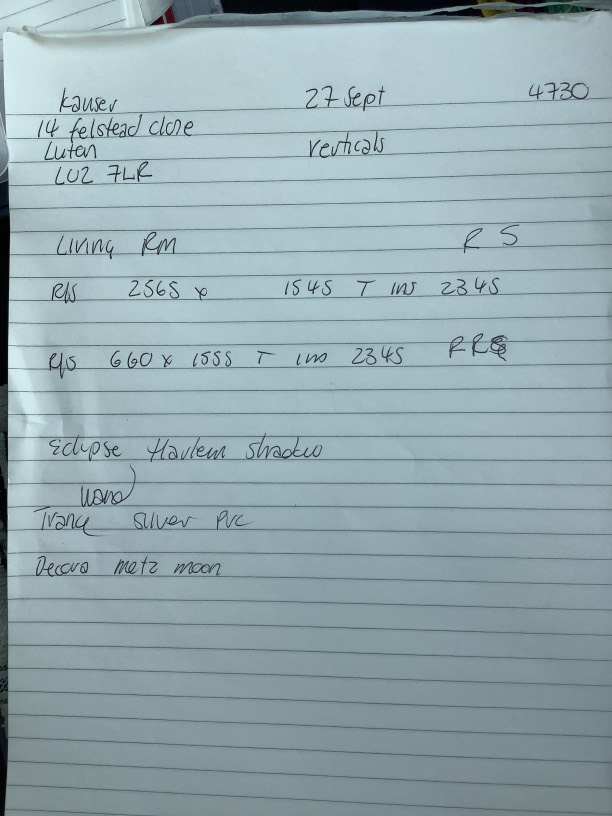 Kauser 27 Sept 4730
14 felstead close
Luton verticals
LU2 7LR
Living RM R S
R/S 2565 x 1545 T ins 2345
R/S 660 x 1555 T ins 2345 RR
Eclipse Harlem
Silver PVC
Decora metz moon